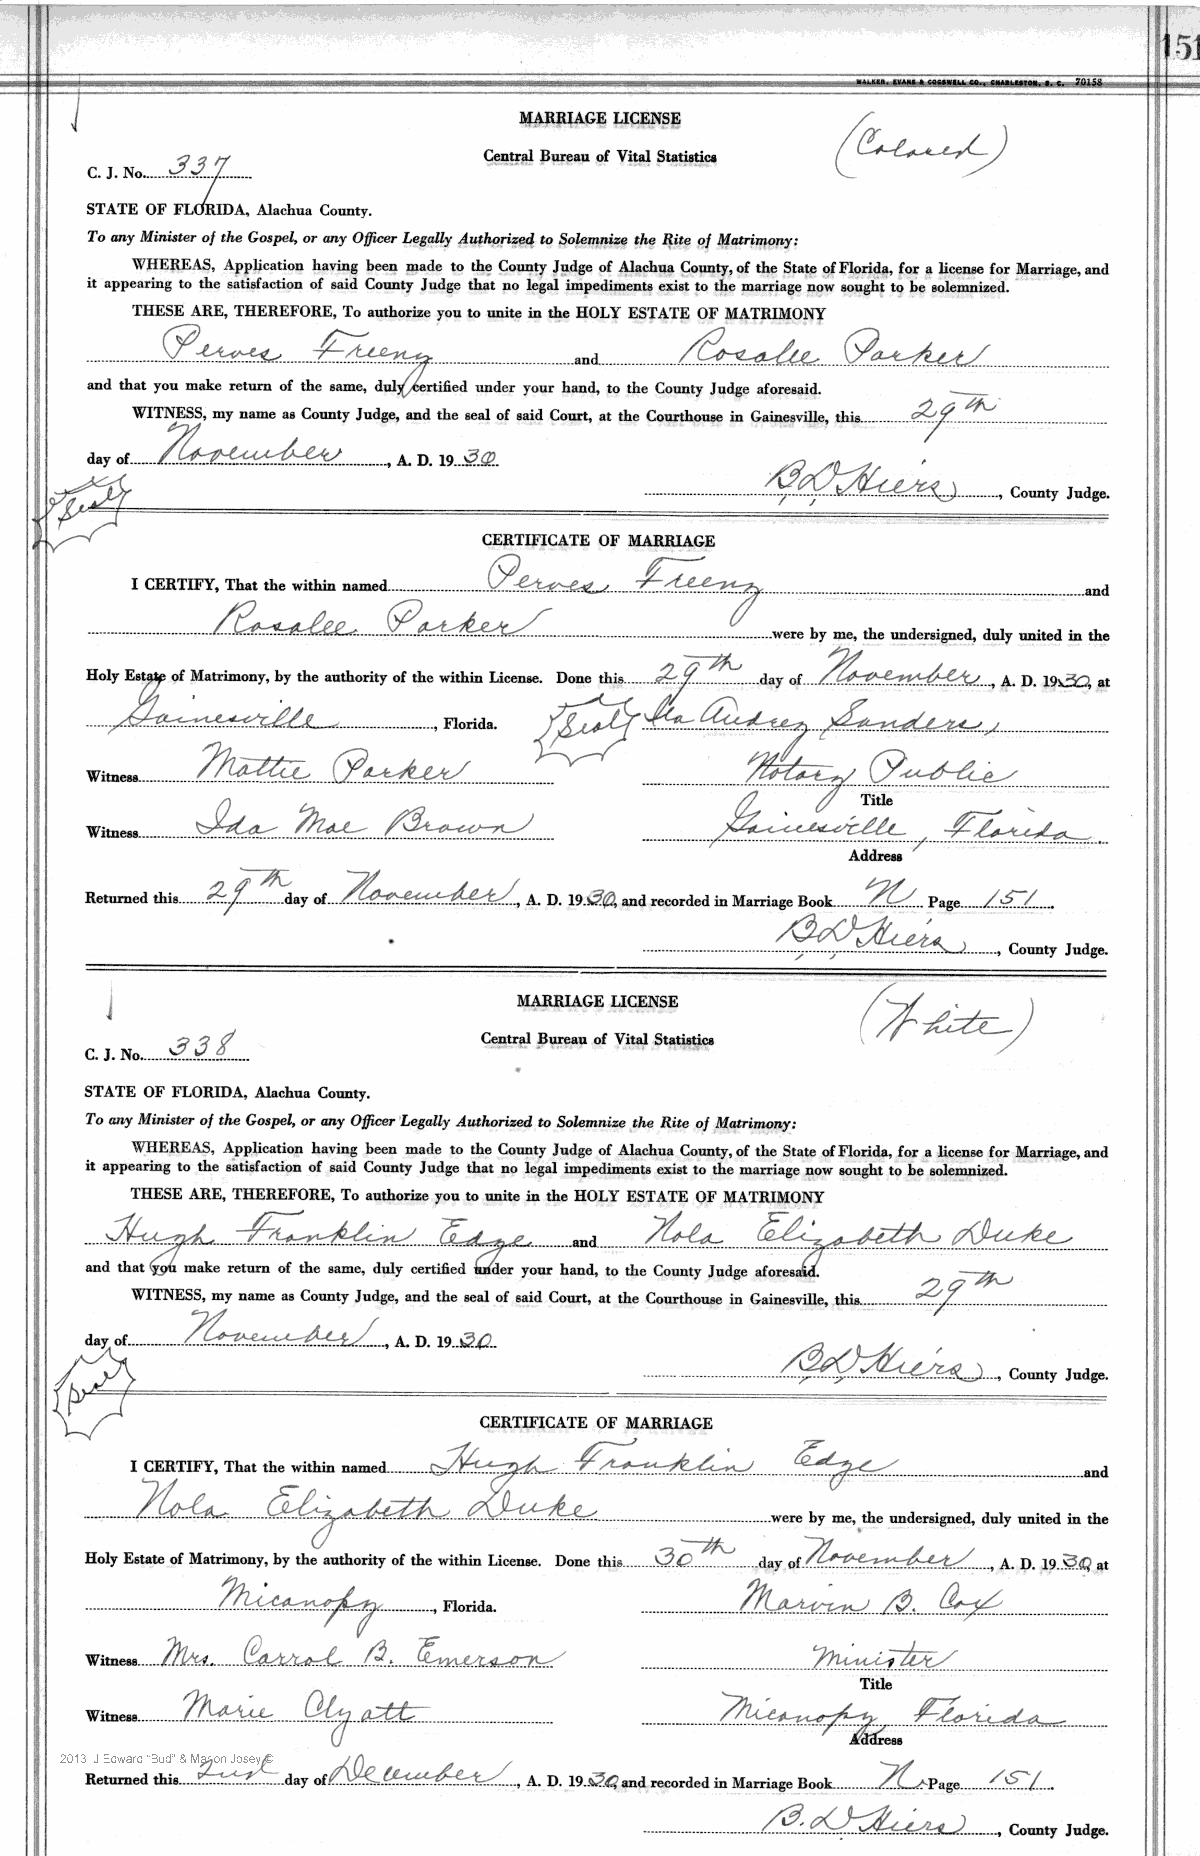 151
WALKER, EVANS & COGSWELL CO., CHARLESTON, S. C. 70158
MARRIAGE LICENSE
(Colored)
Central Bureau of Vital Statistics
C. J. No. 337
STATE OF FLORIDA, Alachua County.
To any Minister of the Gospel, or any Officer Legally Authorized to Solemnize the Rite of Matrimony:
WHEREAS, Application having been made to the County Judge of Alachua County, of the State of Florida, for a license for Marriage, and
it appearing to the satisfaction of said County Judge that no legal impediments exist to the marriage now sought to be solemnized.
THESE ARE, THEREFORE, To authorize you to unite in the HOLY ESTATE OF MATRIMONY
Perves Freeny and Rosalee Parker
and that you make return of the same, duly certified under your hand, to the County Judge aforesaid.
WITNESS, my name as County Judge, and the seal of said Court, at the Courthouse in Gainesville, this 29th
day of November, A. D. 1930
B. D. Hiers, County Judge.
Seal
CERTIFICATE OF MARRIAGE
I CERTIFY, That the within named Perves Freeny and
Rosalee Parker were by me, the undersigned, duly united in the
Holy Estate of Matrimony, by the authority of the within License. Done this 29th day of November, A. D. 1930, at
Gainesville, Florida. Seal Audrey Sanders,
Witness Mattie Parker Notary Public
Title
Witness Ida Mae Brown Gainesville, Florida.
Address
Returned this 29th day of November, A. D. 1930, and recorded in Marriage Book N Page 151.
B. D. Hiers, County Judge.
MARRIAGE LICENSE
(White)
Central Bureau of Vital Statistics
C. J. No. 338
STATE OF FLORIDA, Alachua County.
To any Minister of the Gospel, or any Officer Legally Authorized to Solemnize the Rite of Matrimony:
WHEREAS, Application having been made to the County Judge of Alachua County, of the State of Florida, for a license for Marriage, and
it appearing to the satisfaction of said County Judge that no legal impediments exist to the marriage now sought to be solemnized.
THESE ARE, THEREFORE, To authorize you to unite in the HOLY ESTATE OF MATRIMONY
Hugh Franklin Edge and Nola Elizabeth Duke
and that you make return of the same, duly certified under your hand, to the County Judge aforesaid.
WITNESS, my name as County Judge, and the seal of said Court, at the Courthouse in Gainesville, this 29th
day of November, A. D. 1930
B. D. Hiers, County Judge.
Seal
CERTIFICATE OF MARRIAGE
I CERTIFY, That the within named Hugh Franklin Edge and
Nola Elizabeth Duke were by me, the undersigned, duly united in the
Holy Estate of Matrimony, by the authority of the within License. Done this 30th day of November, A. D. 1930, at
Micanopy, Florida. Marvin B. Cox
Witness Mrs. Carrol B. Emerson Minister
Title
Witness Marie Clyatt Micanopy Florida
Address
2013 J Edward "Bud" & Mason Josey ©
Returned this 2nd day of December, A. D. 1930, and recorded in Marriage Book N Page 151.
B. D. Hiers, County Judge.